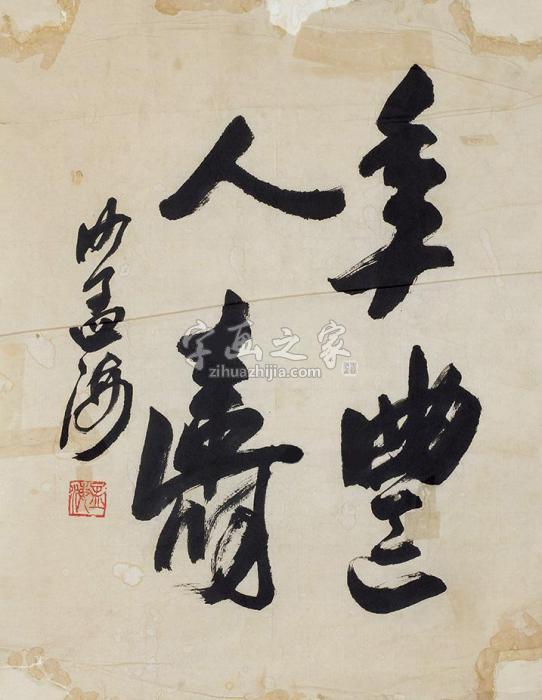 年豐
人壽
沙孟海
字画之家
zihuazhijia.com